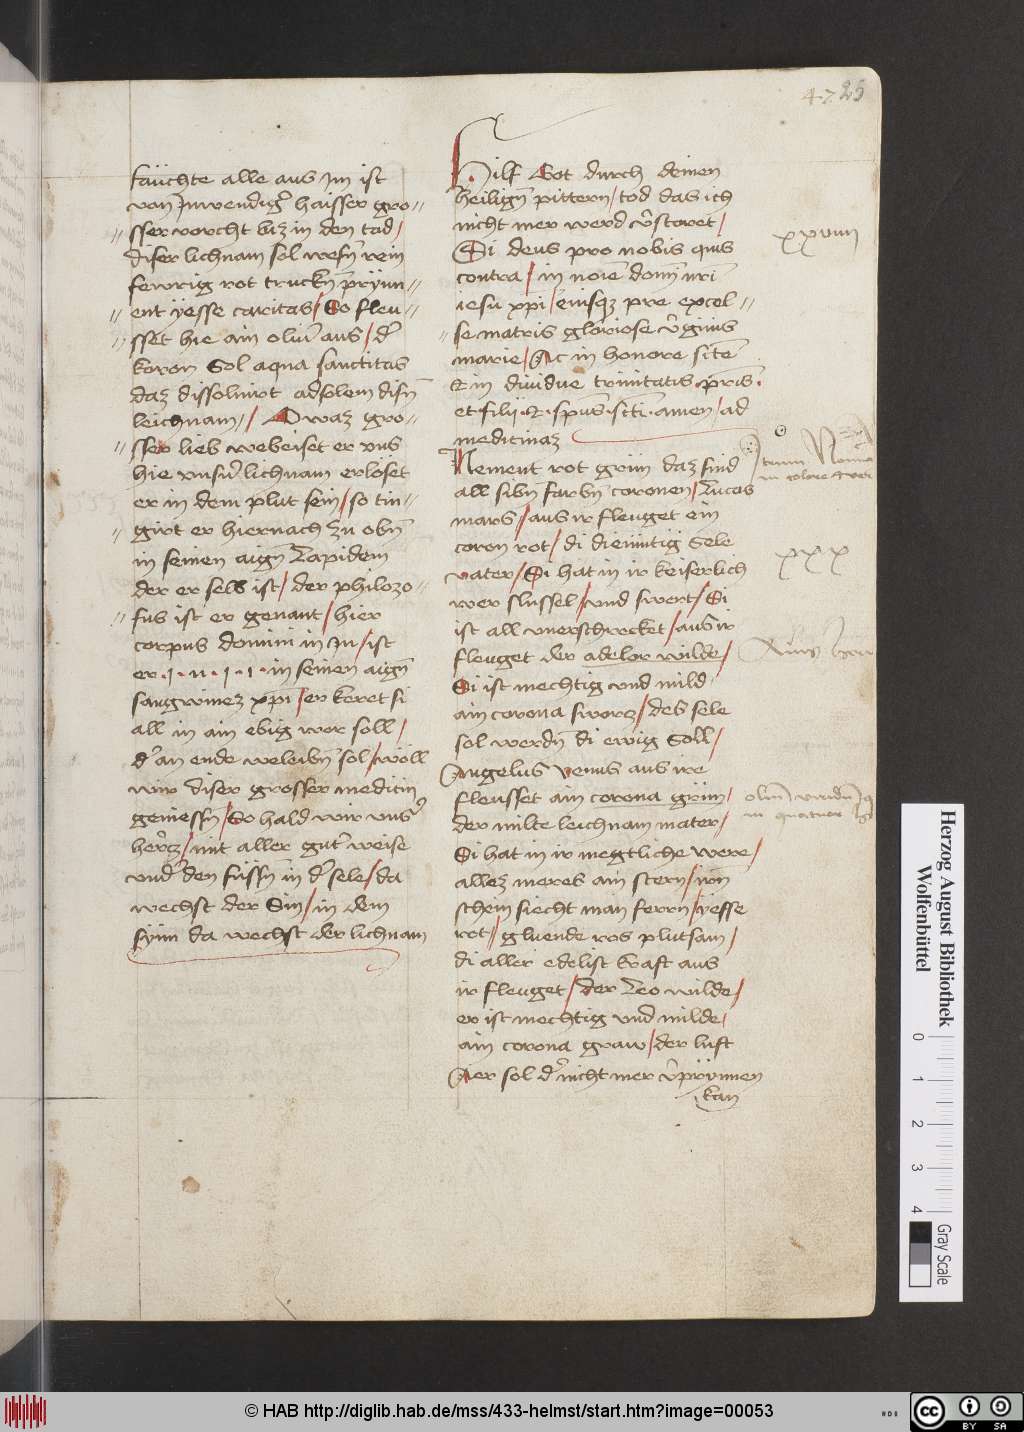 47 25
fäuchte alle aus im ist
von Inwendig̉ haisser gro=
=sser vorcht biz in den tad/
diser lichnam sol wesn̄ rein
fewrig rot truckn̄ prÿnn=
=ent ÿesse caritas/ So fleu=
=sset hie ain oliuͥ aus/ d̉
koron Sol aqua sanctitas
daz dissoluirt ad solem disn̄
leichnam/ O waz gro=
=sser lieb webeiset er vns
hie vnsn̉ lichnam erlöset
er in dem plut sein/ so tin=
=girt er hiernach zu obn̄
in seinen aign̄ Lapidem
der er selb ist/ der philozo=
=fus ist er genant/ hier
corpus domini in Ju/ ist
er ·I·N·R·I· in seinen aign̄
sangwinez xp̄i/ er keret si
all in ain ebig wer soll/
d̉ an ende weleibn̄ sol/ wöll
wir diser grosser medicin
geniessn̄/ So hald wir vns̉
hercz/ mit aller gut̉ weise
vnd̉ den füssn̄ in d̉ sele/ da
wechst der Sin/ in dem
synn da wechst der lichnam
Hilf Got durch deinen
heilign̄ pittern/ tod das ich
nicht mer werd v̉storet/
Si deus pro nobis quis
contra/ in noīe domī nr̄i
iesu xp̄i/ eiusqz pre excel=
=se matris gloriose v̉ginis
marie/ Ac in honore sc̄te
& in diuidue trinitatis p̄ris.
et filij & sp̄us sc̄ti amen/ ad
medicinaz
xxviiij
Nement rot grün daz sind
all sibn̄ farbn̄ coronen/ Lucas
mars/ aus ir fleuget ein
coron rot/ di diemütig Sele
vater/ Si hat in ir keiserlich
wer slussel/ vnd swert/ Si
ist all vnerschrecket/ aus ir
fleuget der adelor wilde/
Si ist mechtig vnd mild
ain corona swarcz/ des sele
sol werdn̄ di ewig Soll/
xxx
Angelus venus aus ire
fleusset ain corona grün/
der milte leichnam mater/
Si hat in ir megtliche were/
allez merck ain stern/ irn̄
schein siecht man ferrn/ ÿesse
rot/ gluende ros plutsam/
di aller edelist kraft aus
ir fleuget/ der Leo wilde/
er ist mechtig vnd milde/
ain corona graw/ der luft
Aer sol d̉ nicht mer v̉prÿnnen
kan
Herzog August Bibliothek
Wolfenbüttel
0 1 2 3 4
Gray Scale
© HAB http://diglib.hab.de/mss/433-helmst/start.htm?image=00053
cc BY SA